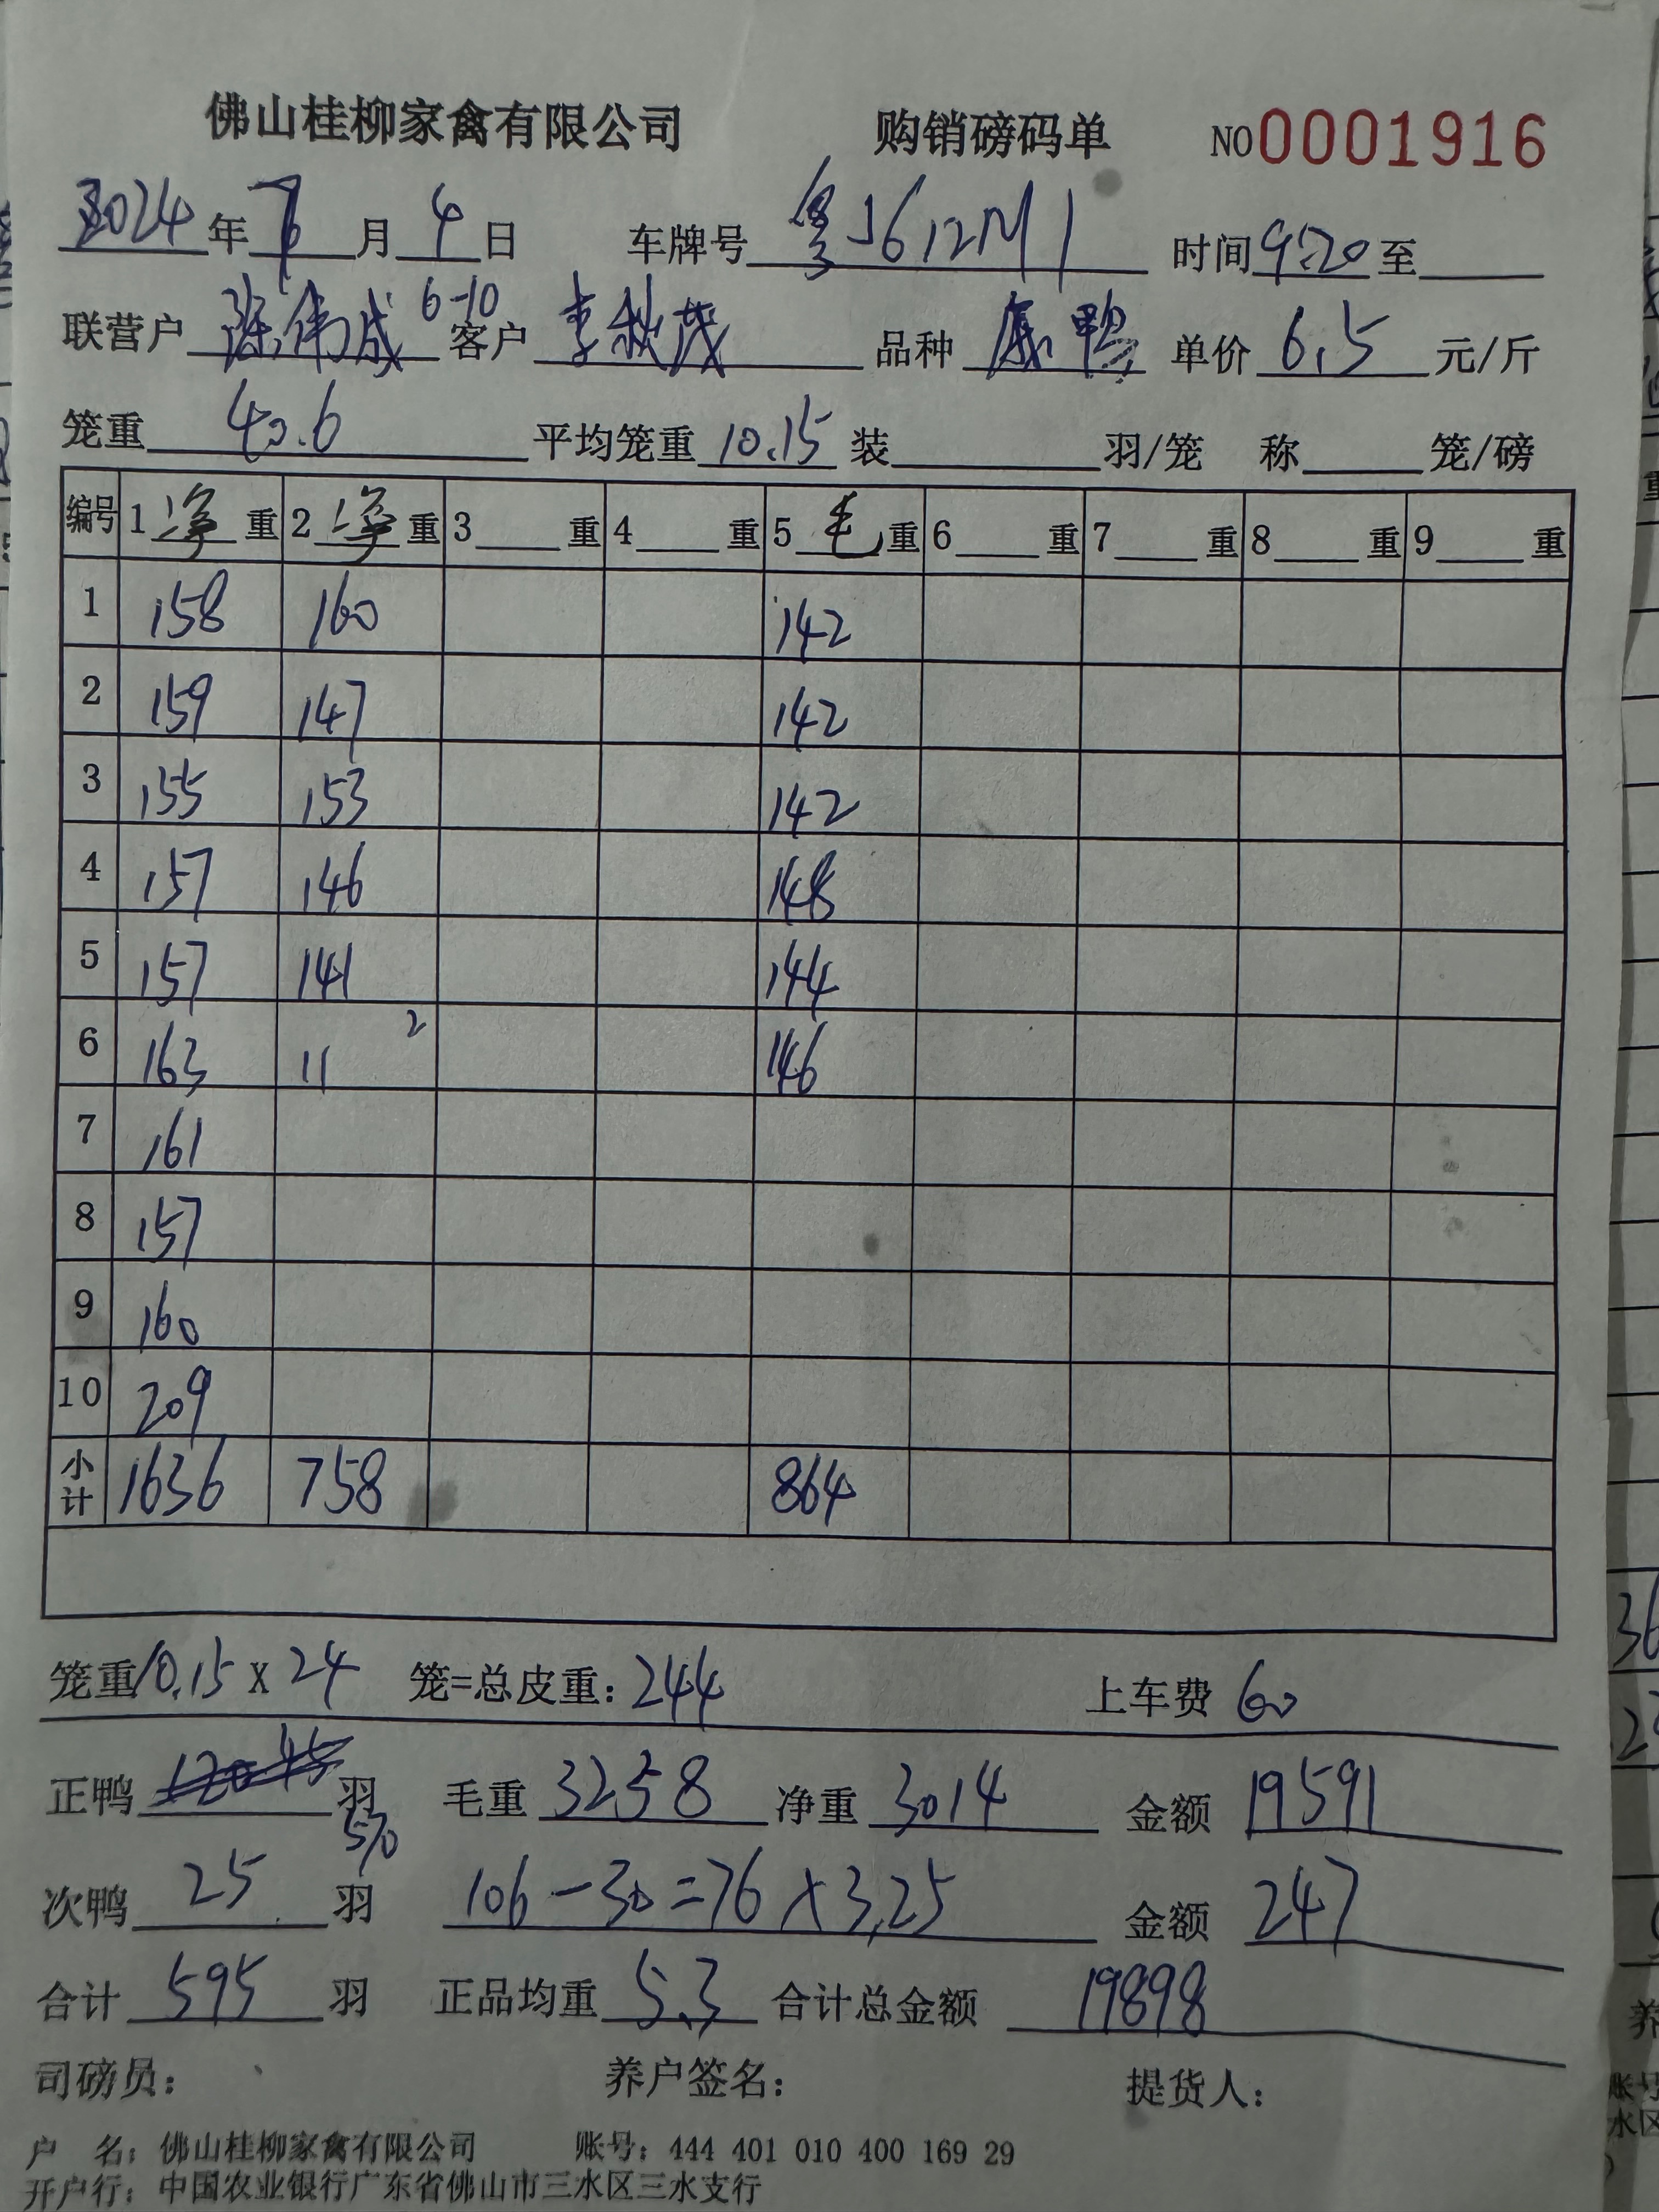 佛山桂柳家禽有限公司 购销磅码单 NO 0001916
2024年 月 4日 车牌号 粤J612M1 时间 9:20 至
联营户 陈伟成 6-10 客户 李秋茂 品种 鸭 单价 6.5 元/斤
笼重 40.6 平均笼重 10.15 装 羽/笼 称 笼/磅
编号 1 净 重 2 净 重 3 重 4 重 5 毛 重 6 重 7 重 8 重 9 重
1 158 160 142
2 159 147 142
3 155 153 142
4 157 146 148
5 157 141 144
6 163 11 2 146
7 161
8 157
9 160
10 209
小计 1636 758 864
笼重 10.15 X 24 笼=总皮重: 244 上车费 60
正鸭 羽 570 毛重 3258 净重 3014 金额 19591
次鸭 25 羽 106-30=76×3.25 金额 247
合计 595 羽 正品均重 5.3 合计总金额 19898
司磅员: 养户签名: 提货人:
户 名: 佛山桂柳家禽有限公司 账号: 444 401 010 400 169 29
开户行: 中国农业银行广东省佛山市三水区三水支行